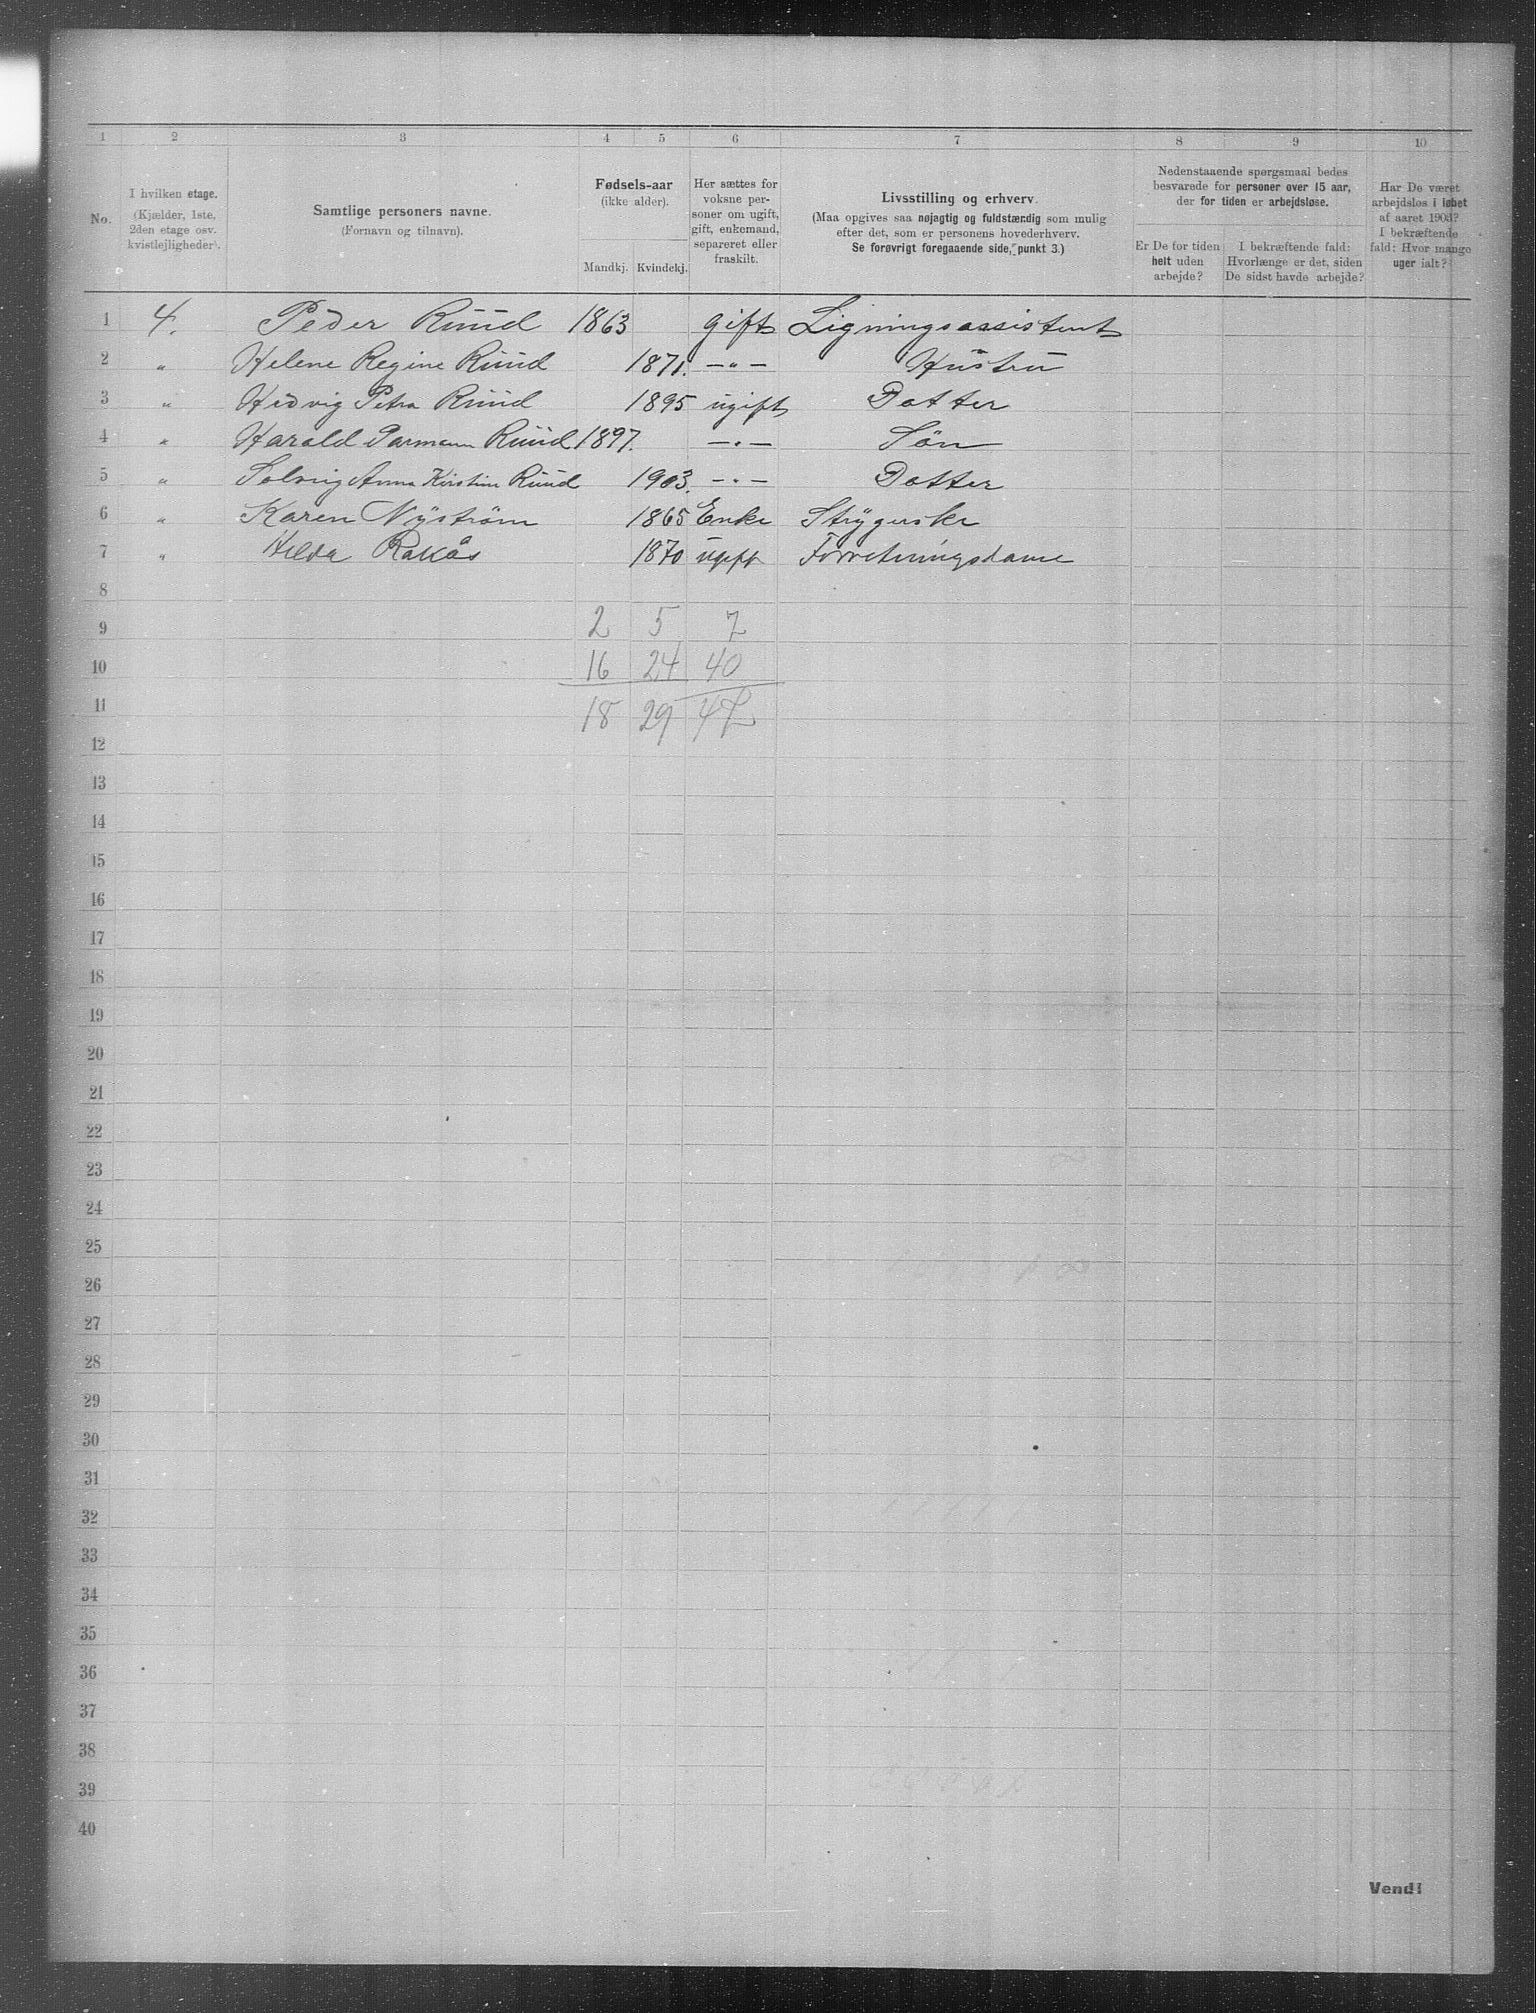 1 2 3 4 5 6 7 8 9 10
No.
I hvilken etage.
(Kjælder, 1ste,
2den etage osv.
kvistlejligheder).
Samtlige personers navne.
(Fornavn og tilnavn).
Fødsels-aar
(ikke alder).
Mandkj. Kvindekj.
Her sættes for
voksne per-
soner om ugift,
gift, enkemand,
separeret eller
fraskilt.
Livsstilling og erhverv.
(Maa opgives saa nøjagtig og fuldstændig som mulig
efter det, som er personens hovederhverv.
Se forøvrigt foregaaende side, punkt 3.)
Nedenstaaende spørgsmaal bedes
besvarede for personer over 15 aar,
der for tiden er arbejdsløse.
Er De for tiden
helt uden
arbejde?
I bekræftende fald:
Hvorlænge er det, siden
De sidst havde arbejde?
Har De været
arbejdsløs i løbet
af aaret 1903?
I bekræftende
fald: Hvor mange
uger ialt?
1 4. Peder Ruud 1863 gift Ligningsassistent
2 " Helene Regine Ruud 1871. — " — Hustru
3 " Hedvig Petra Ruud 1895 ugift Datter
4 " Harald Parmann Ruud 1897. — " — Søn
5 " Solveig Anna Kirstine Ruud 1903. — " — Datter
6 " Karen Nyström 1865 Enke Strygerske
7 " Hilda Rakås 1870 ugift Forretningsdame
8
9 2 5 7
10 16 24 40
11 18 29 47
12
13
14
15
16
17
18
19
20
21
22
23
24
25
26
27
28
29
30
31
32
33
34
35
36
37
38
39
40
Vend!